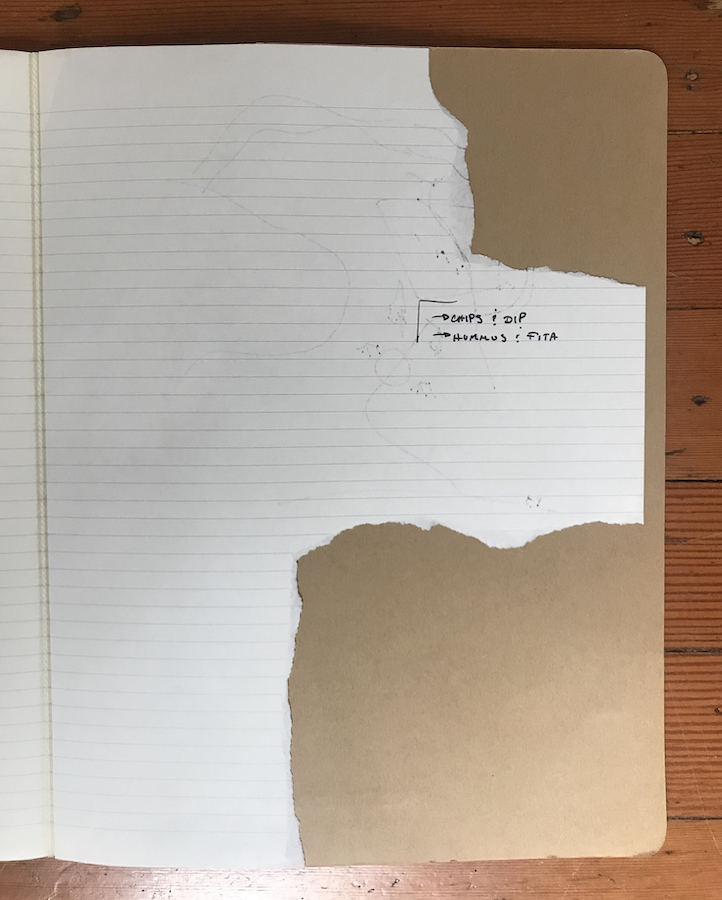 →CHIPS & DIP
→HUMMUS & PITA